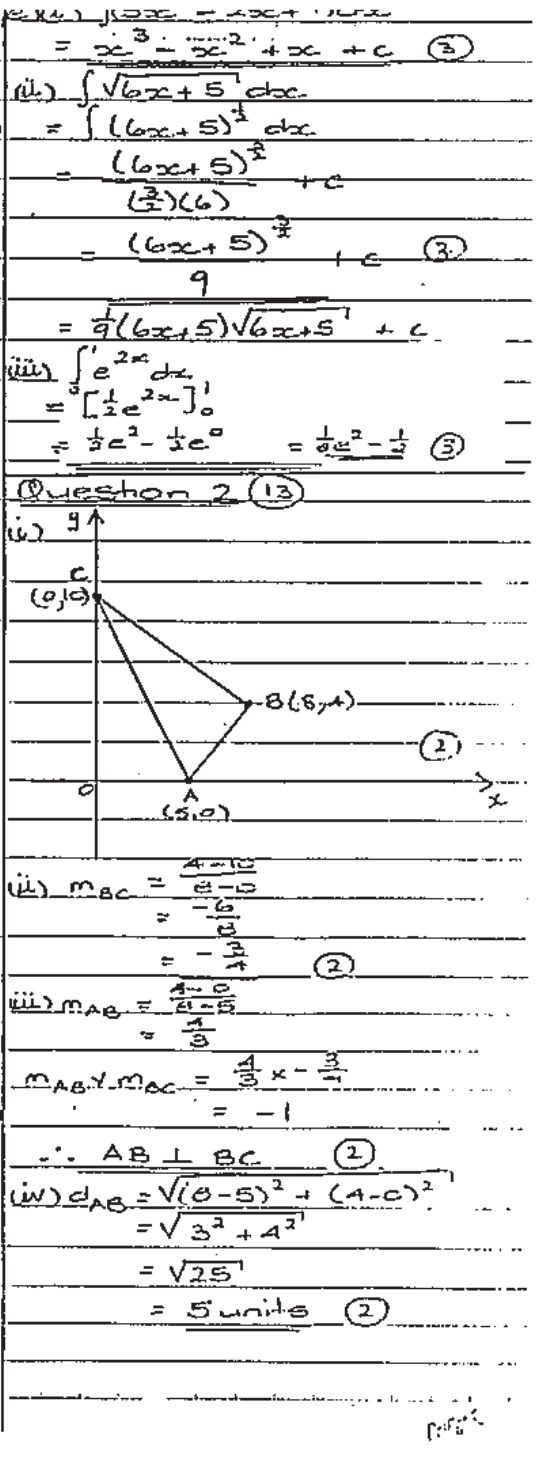 = x³ - x² + x + c (3)
(ii) ∫ √6x + 5 dx
= ∫ (6x + 5)^½ dx
= (6x + 5)^(3/2) / (3/2)(6) + c
= (6x + 5)^(3/2) / 9 + c (3)
= 1/9 (6x + 5)√6x + 5 + c
(iii) ∫₀¹ e^(2x) dx
= [½e^(2x)]₀¹
= ½e² - ½e⁰ = ½e² - ½ (3)
Question 2 (13)
(i) y
C
(0,10)
B(8,4)
(2)
0 A x
(5,0)
(ii) m_BC = (4 - 10)/(8 - 0)
= -6/8
= -3/4 (2)
(iii) m_AB = (4 - 0)/(8 - 5)
= 4/3
m_AB × m_BC = 4/3 × -3/4
= -1
∴ AB ⊥ BC (2)
(iv) d_AB = √(8-5)² + (4-0)²
= √3² + 4²
= √25
= 5 units (2)